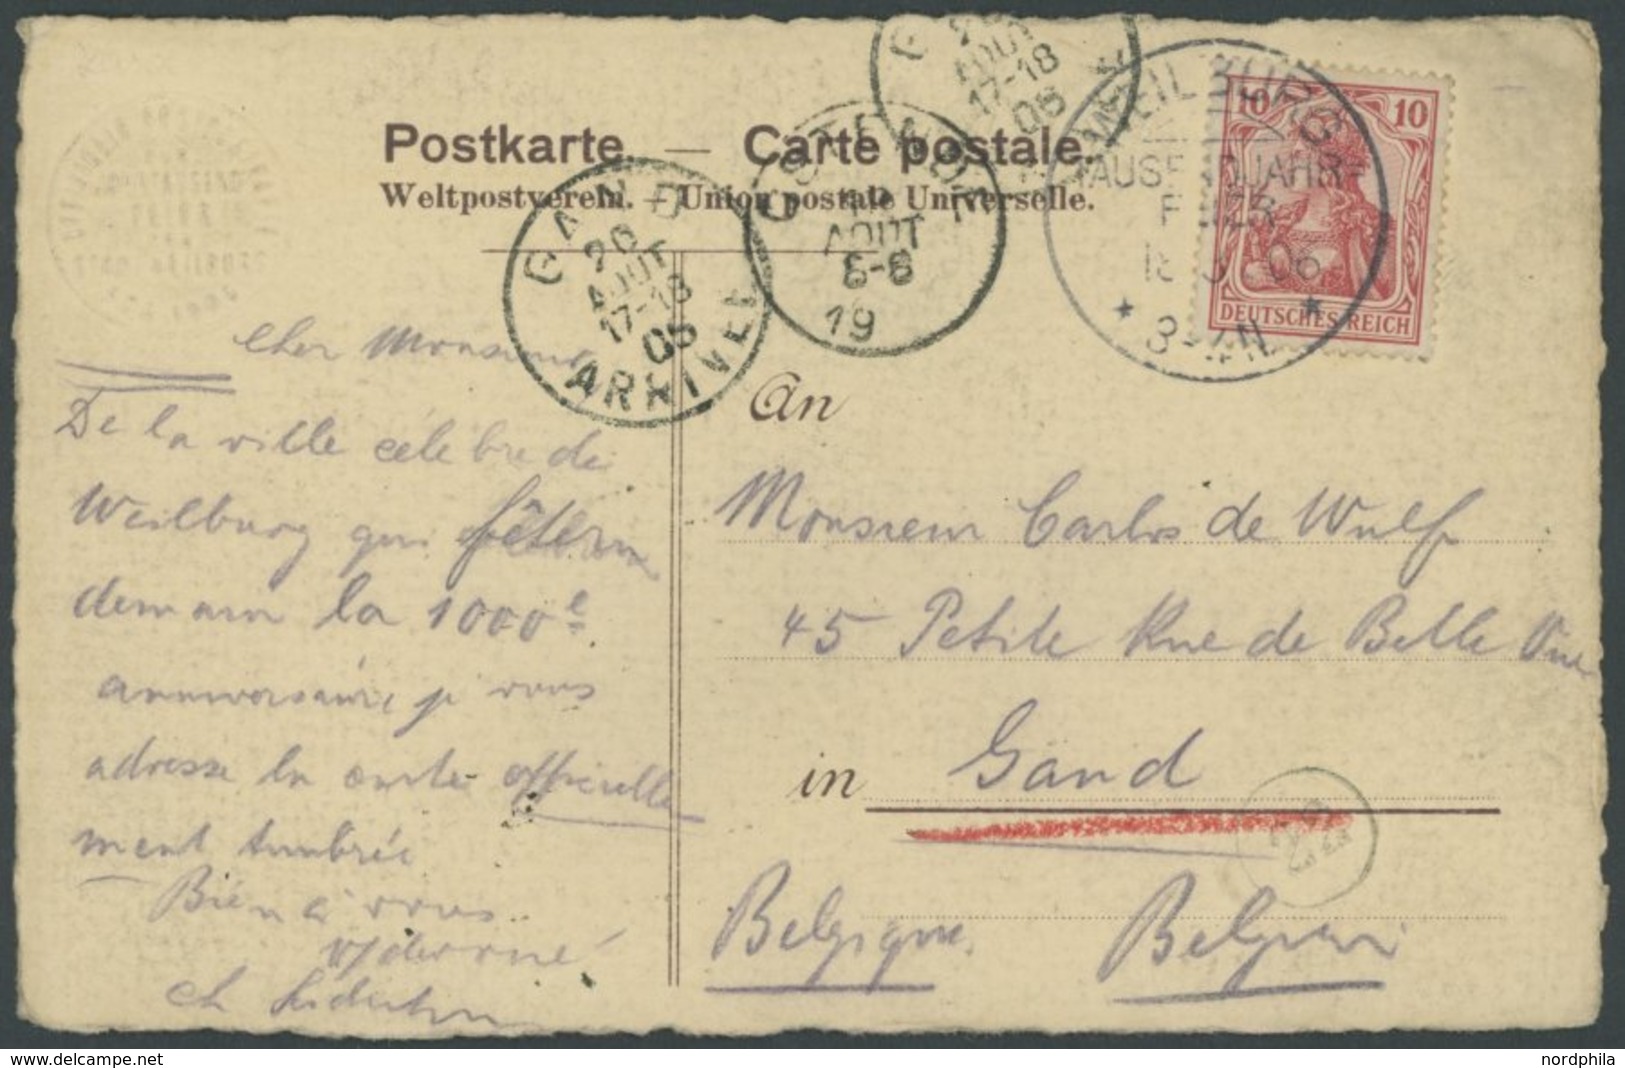 Postkarte. — Carte postale.
Weltpostverein. — Union postale Universelle.
GAND
20
AOUT
17-18
06
ARRIVEE
OOSTENDE
AOUT
19
AOUT
17-18
06
WEILBURG
TAUSENDJAHR=
FEIER
18 06
* 3-4N *
10 10
DEUTSCHES REICH
Cher Monsieur
De la ville célèbre de
Weilburg qui fêtera
demain la 1000e
anniversaire je vous
adresse la carte officielle
ment timbrée
Bien à vous
An
Monsieur Carlos de Wulf
45 Petite Rue de Belle Vue
in Gand
Belgique Belgien
nordphila
www.delcampe.net